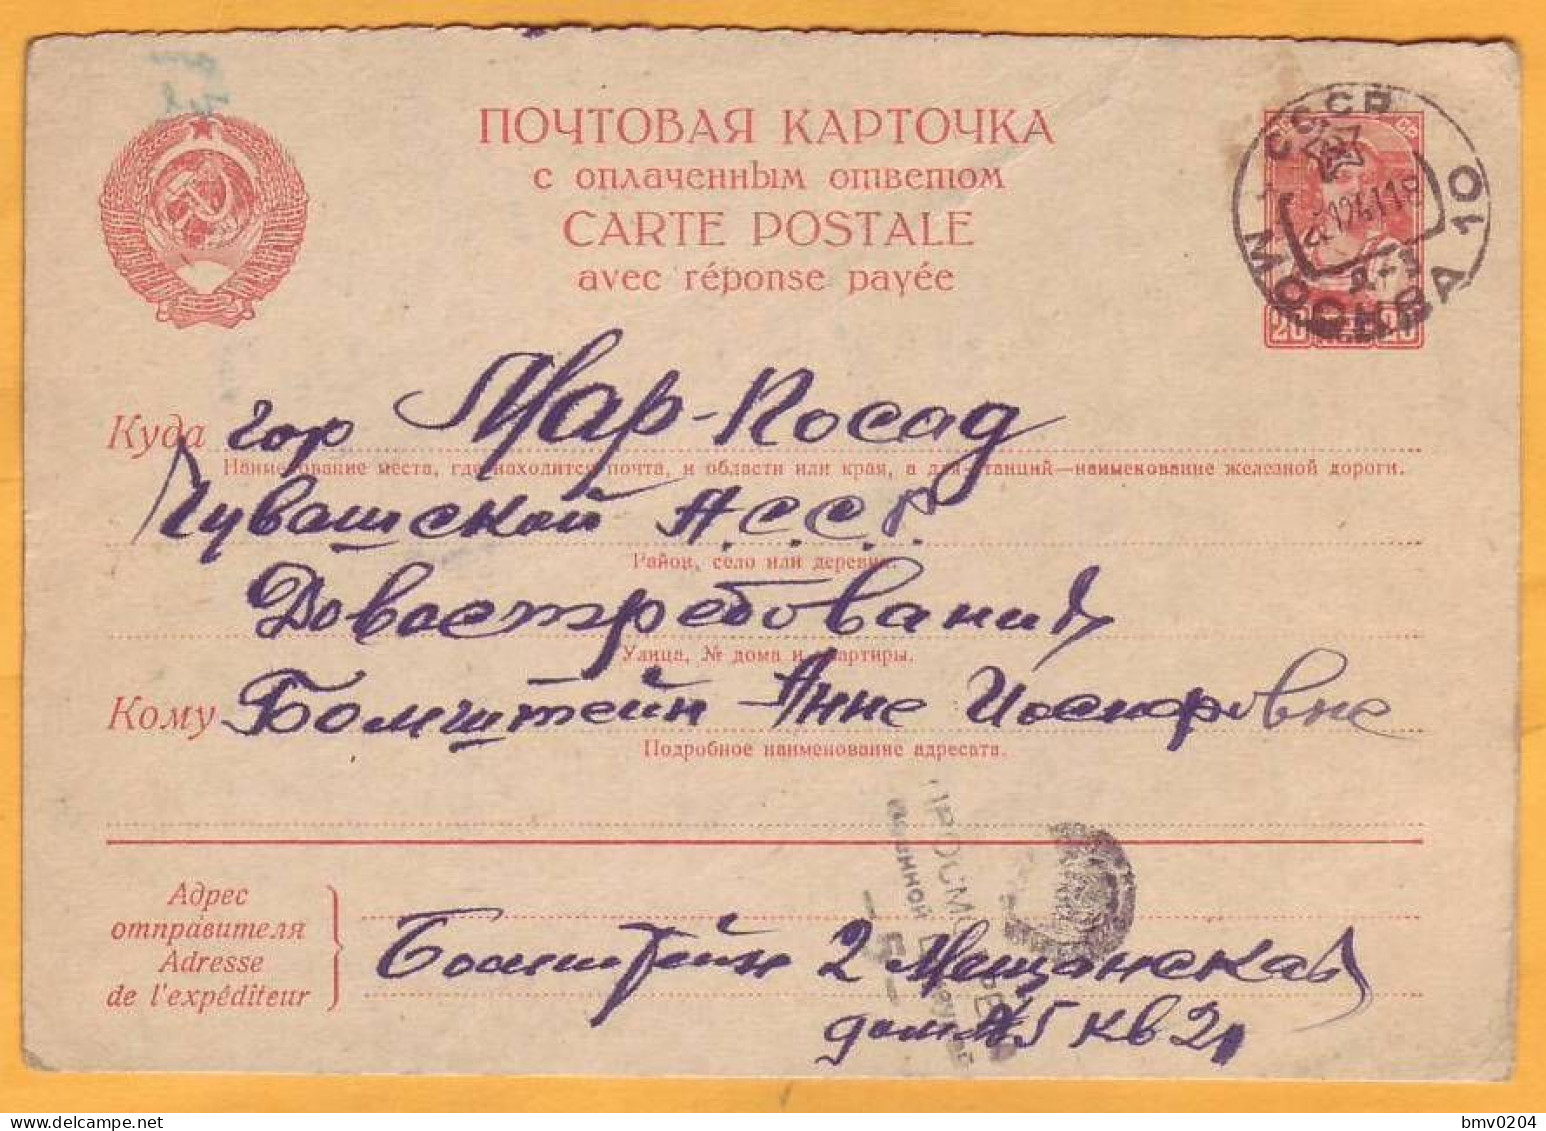 ПОЧТОВАЯ КАРТОЧКА
с оплаченным ответом
CARTE POSTALE
avec réponse payée
СССР
МОСКВА 10
Куда гор Мар-Посад
Наименование места, где находится почта, и области или края, а для станций—наименование железной дороги.
Чувашской А.С.С.Р.
Район, село или деревня.
Довостребования
Улица, № дома и квартиры.
Кому Бомштейн Анне Иосифовне
Подробное наименование адресата.
Адрес
отправителя
Adresse
de l'expéditeur
Бомштейн 2 Мещанская
дом №5 кв 21
bmv0204